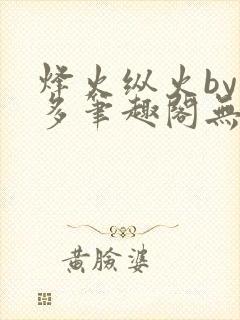 烽火纵火by
多笔趣阁無
黄脸婆